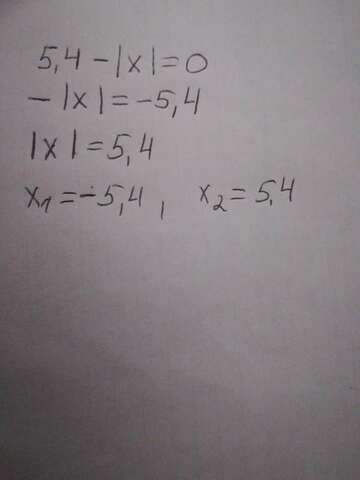 5,4 - |x| = 0
- |x| = -5,4
|x| = 5,4
x₁ = -5,4 , x₂ = 5,4